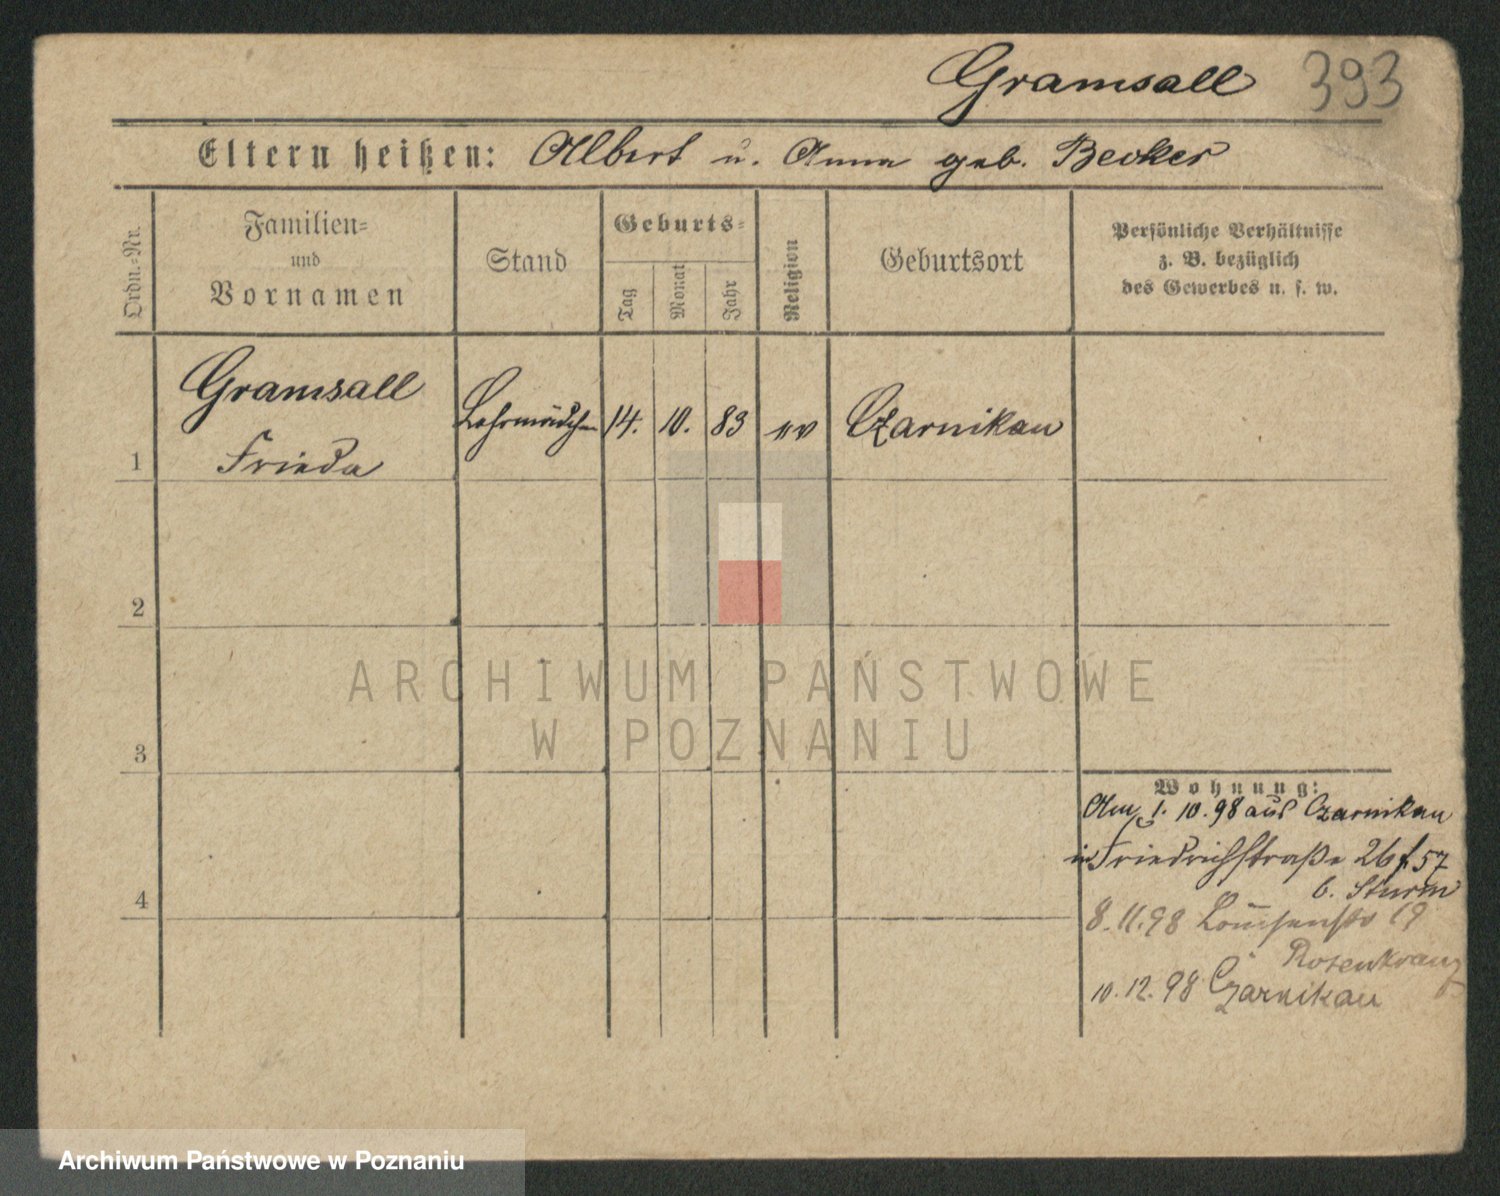 Gramsall 393
Eltern heißen: Albert u. Anna geb. Becker
Ordn.=Nr.
Familien=
und
Vornamen
Stand
Geburts=
Tag
Monat
Jahr
Religion
Geburtsort
Persönliche Verhältnisse
z. B. bezüglich
des Gewerbes u. s. w.
1
Gramsall
Frieda
Lehrmädchen
14. 10. 83 ev Czarnikau
2
3
4
ARCHIWUM PAŃSTWOWE
W POZNANIU
Wohnung:
Am 1. 10. 98 aus Czarnikau
in Friedrichstraße 26 57
b. Sturm
8. 11. 98 19
Rosenkranz
10. 12. 98 Czarnikau
Archiwum Państwowe w Poznaniu